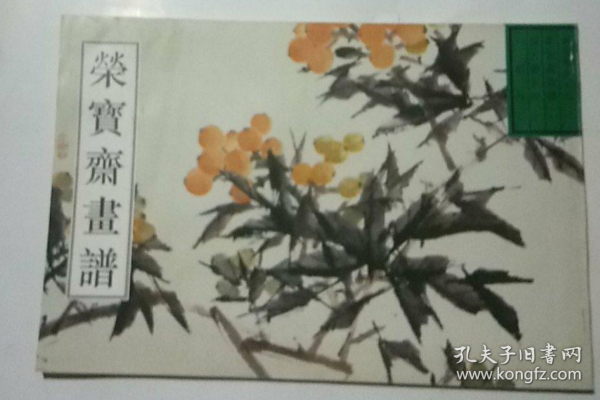 榮寶齋畫譜
孔夫子旧書网
www.kongfz.com